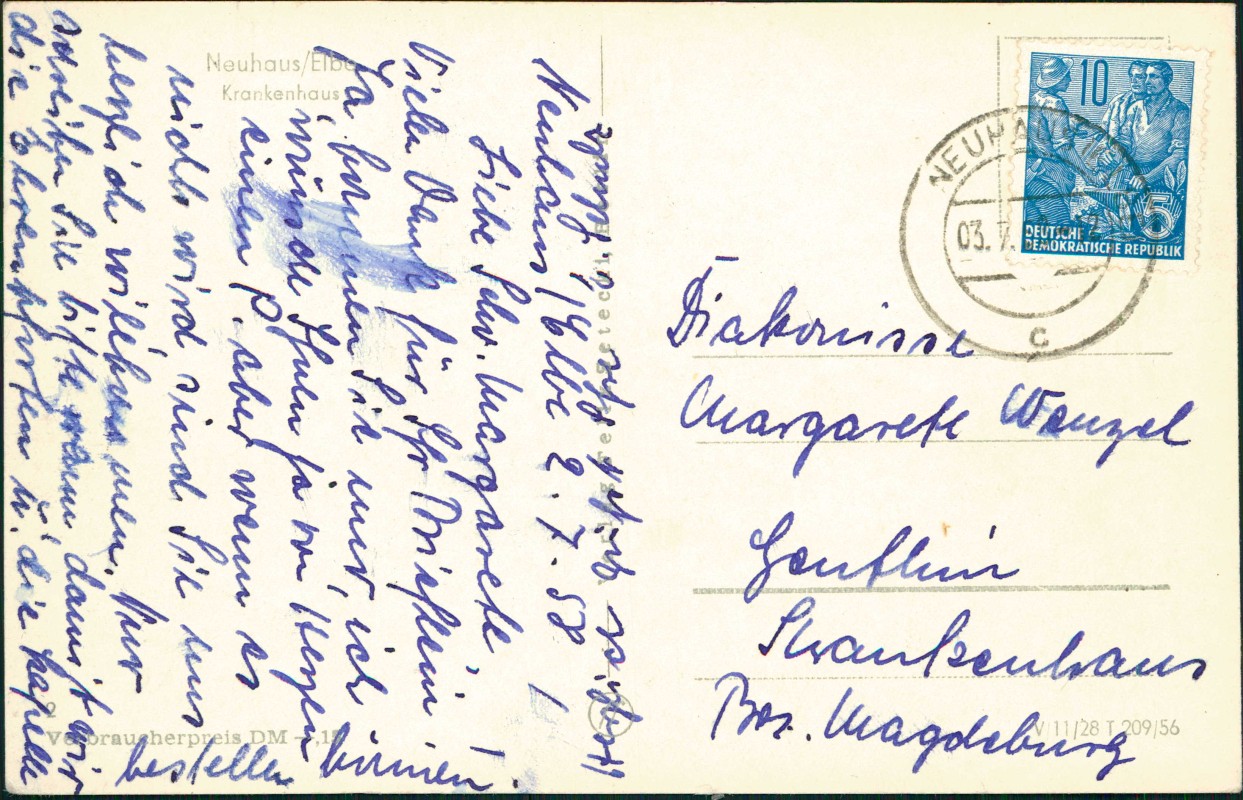 Neuhaus/Elbe
Krankenhaus
Neuhaus/Elbe 2.7.58
Liebe Schw. Margarete,
Vielen Dank für Ihr Brieflein!
Da kommen Sie nur, ich
wünsche Ihnen ja von Herzen
einen P. aber wenn es
nichts wird sind Sie uns
herzlich willkommen. Nur
schreiben Sie bitte wann, damit wir
die Ehrenpforten u. die Kapelle
bestellen können.
Herzlichst Ihre
2
Verbraucherpreis DM –,15
10
5
DEUTSCHE
DEMOKRATISCHE REPUBLIK
NEUHAUS
03.7.
c
Diakonisse
Margarete Wenzel
Genthin
Krankenhaus
Bez. Magdeburg
V 11/28 T 209/56